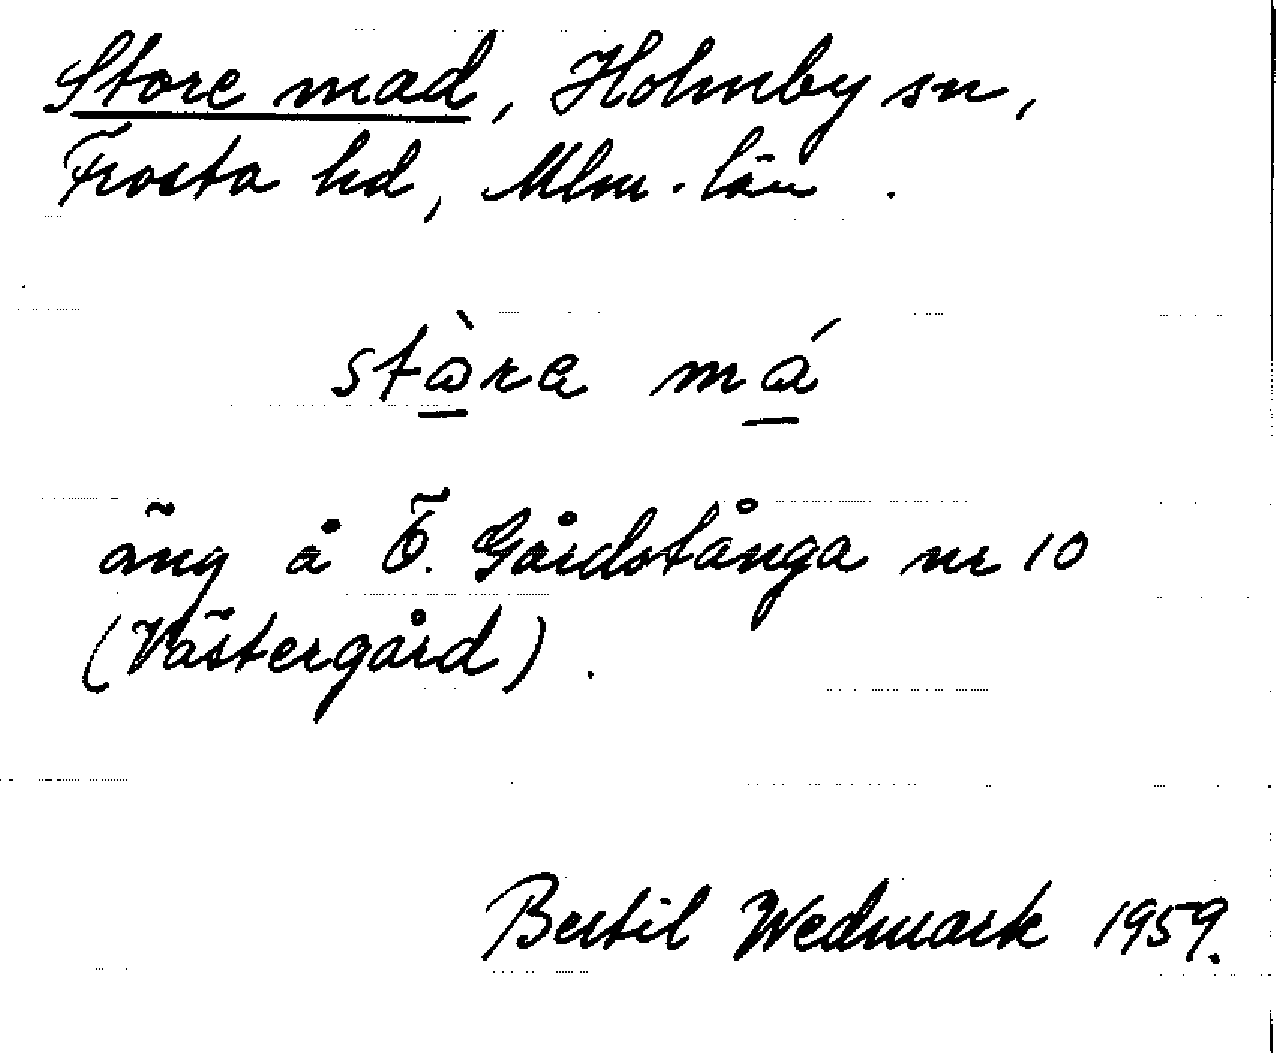 Store mad, Holmby sn,
Frosta hd, Mlm. län.
stòra má
äng å Ö. Gårdstånga nr 10
(Västergård).
Bertil Wedmark 1959.